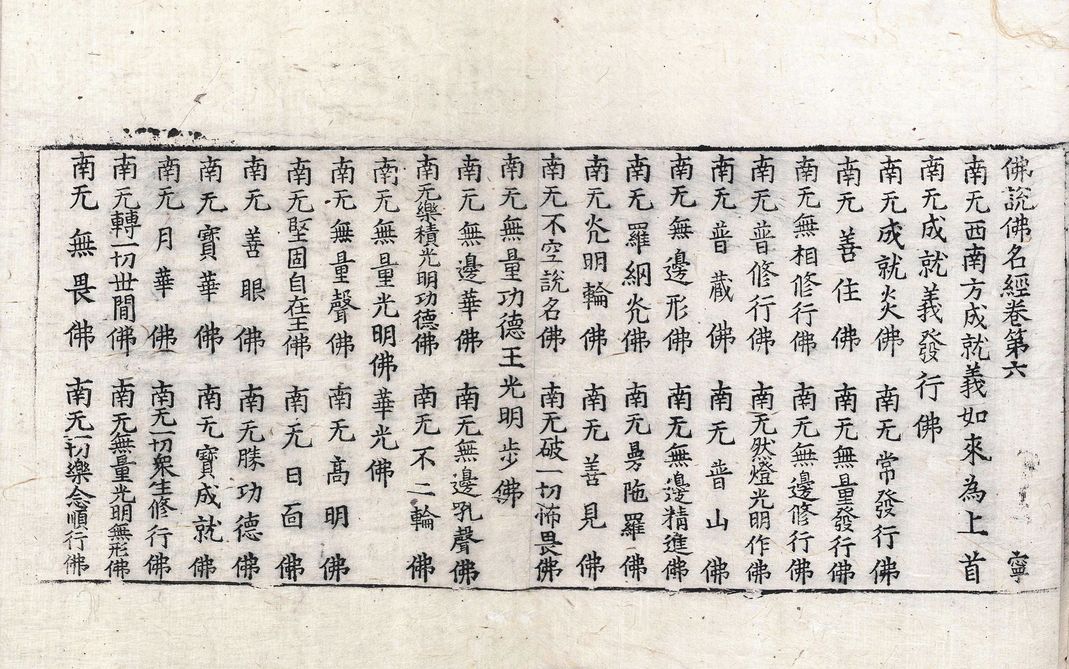 佛說佛名經卷第六 寧
南无西南方成就義如來為上首
南无成就義發行佛
南无成就炎佛 南无常發行佛
南无善住佛 南无無量發行佛
南无無相修行佛 南无無邊修行佛
南无普修行佛 南无然燈光明作佛
南无普蔵佛 南无普山佛
南无無邊形佛 南无無邊精進佛
南无羅網炎佛 南无曼陁羅佛
南无炎明輪佛 南无善見佛
南无不空說名佛 南无破一切怖畏佛
南无無量功德王光明步佛
南无無邊華佛 南无無邊吼聲佛
南无樂積光明功德佛 南无不二輪佛
南无無量光明佛華光佛
南无無量聲佛 南无髙明佛
南无堅固自在王佛 南无日面佛
南无善眼佛 南无勝功德佛
南无寶華佛 南无寶成就佛
南无月華佛 南无一切衆生修行佛
南无轉一切世間佛 南无無量光明無形佛
南无無畏佛 南无一切樂念順行佛